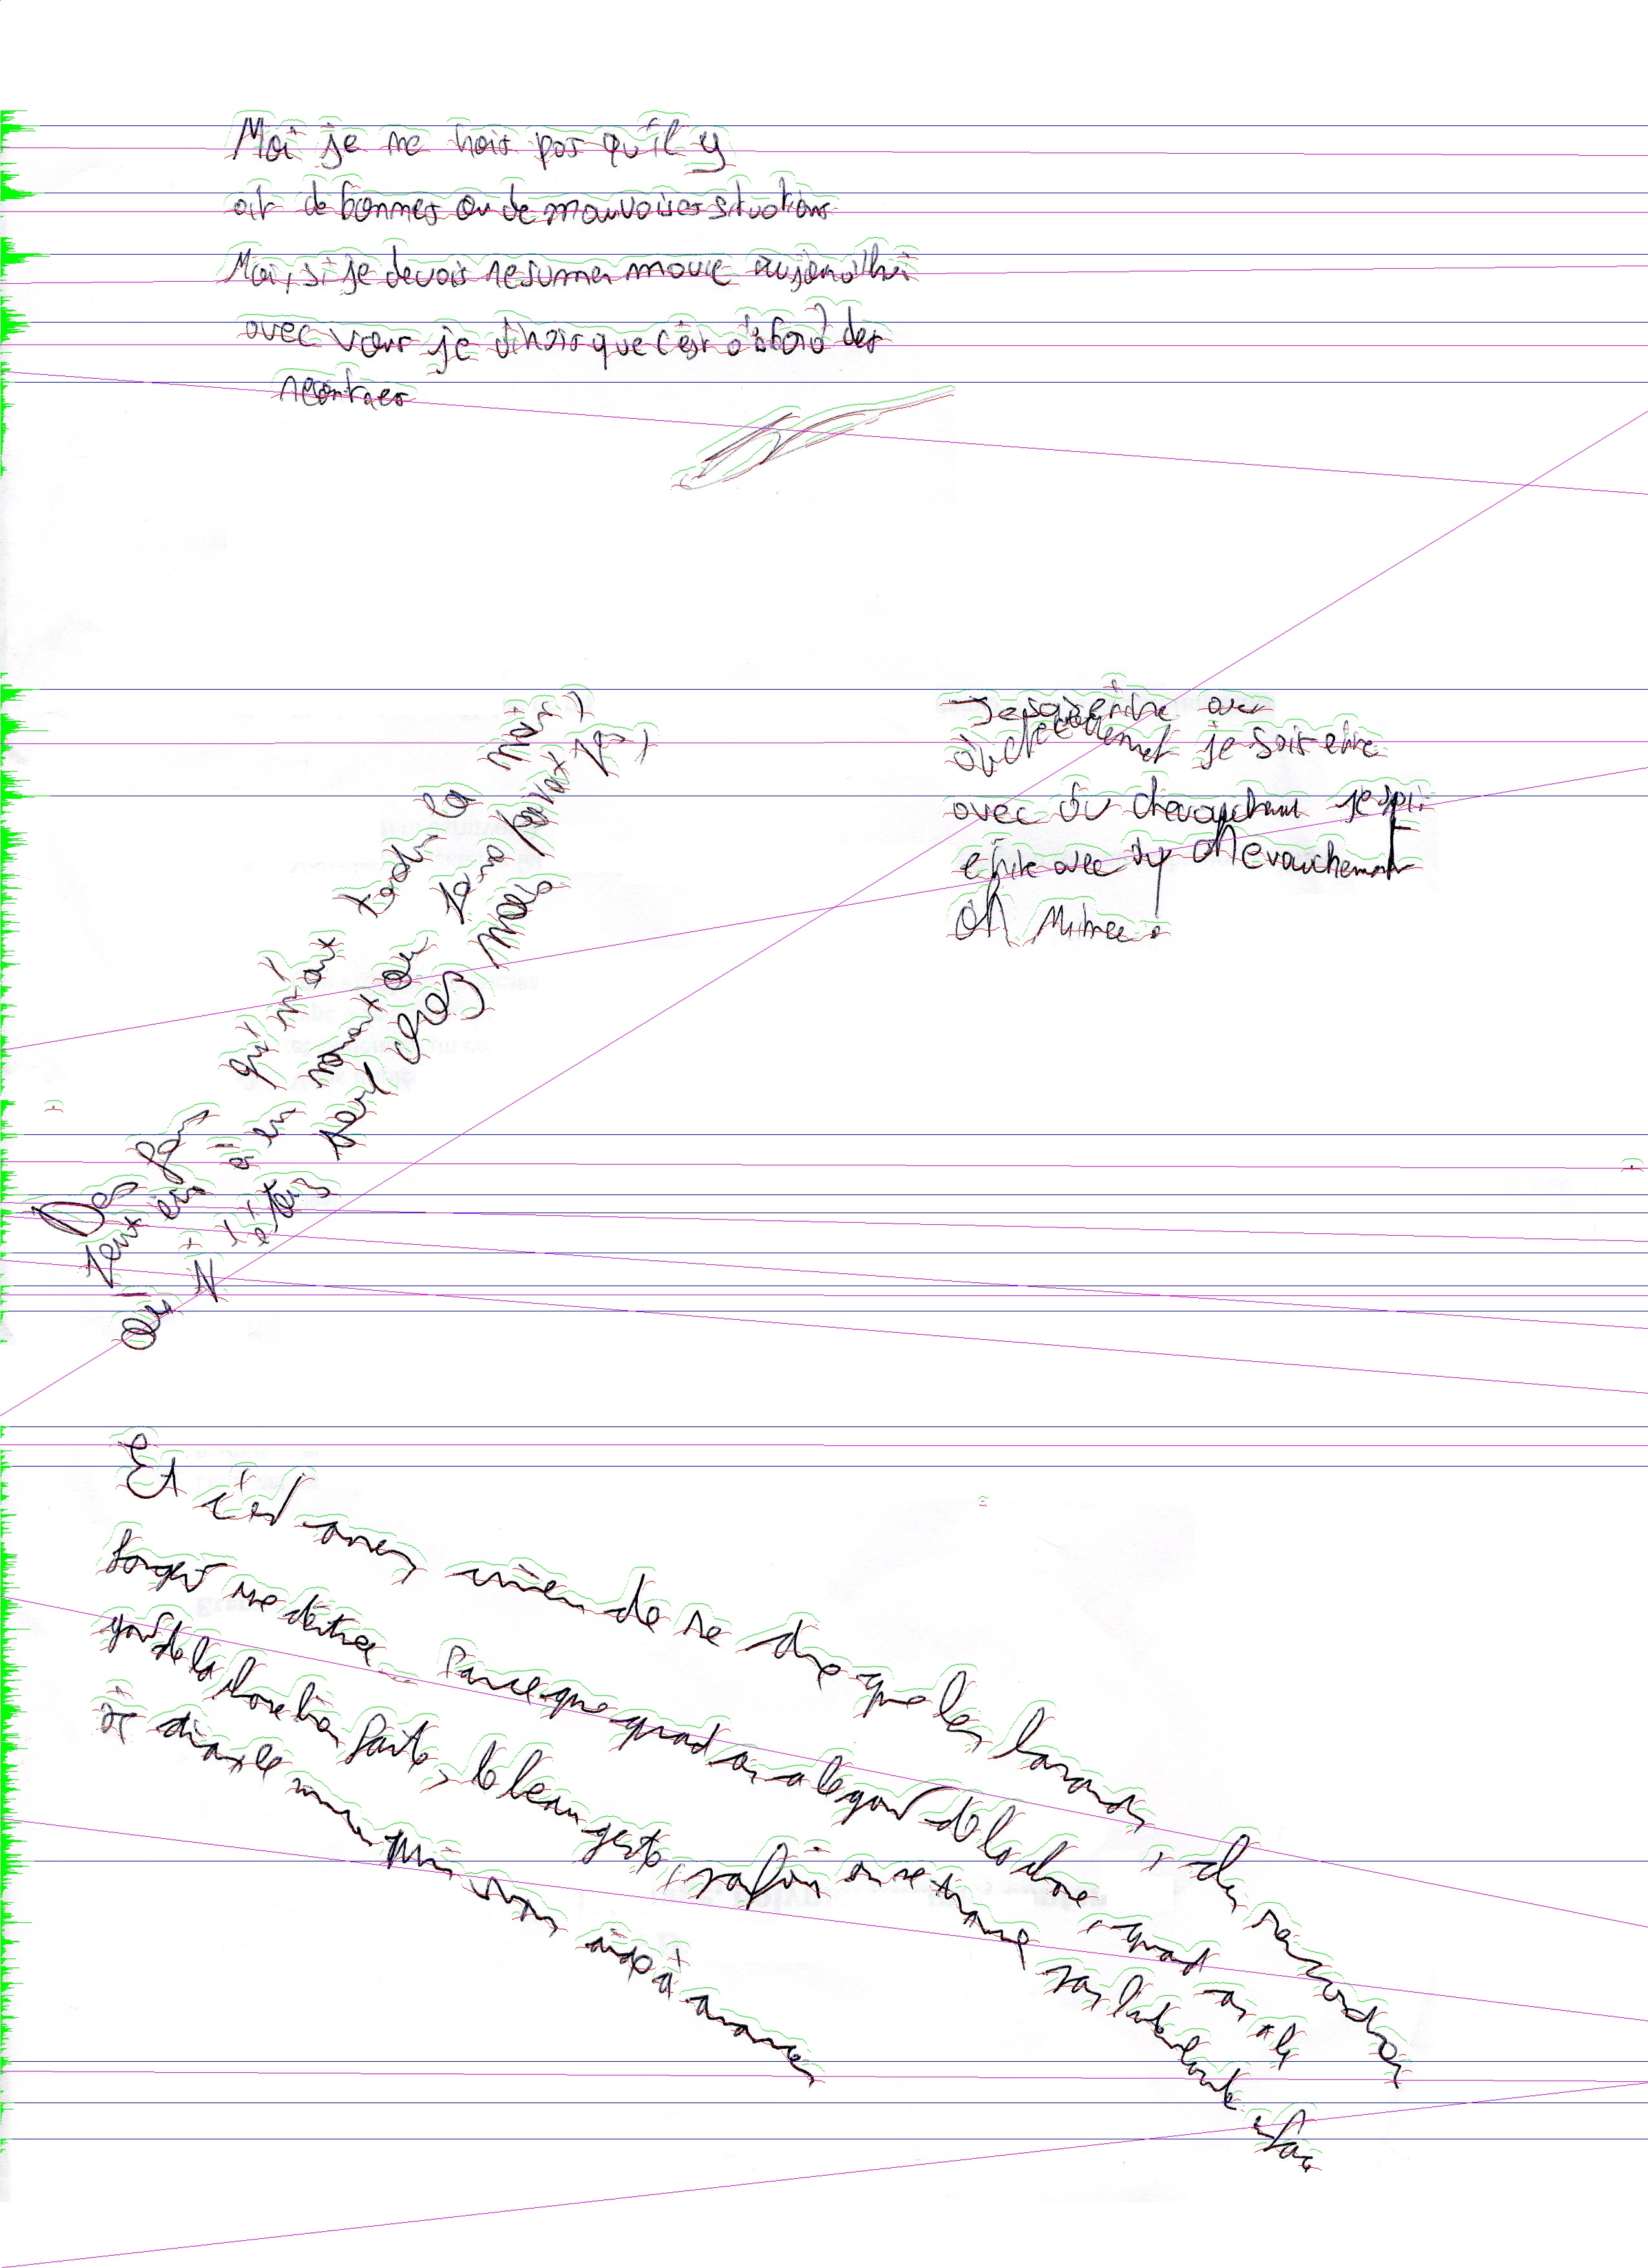 Moi je ne crois pas qu'il y
ait de bonnes ou de mauvaises situations
Moi, si je devais resumer ma vie aujourd'hui
avec vous je dirais que c'est d'abord des
recontres
Des gens qui m'ont tendu la main,
peut être à un moment où je ne pouvais pas,
où j'étais seul chez moi
Je sais écrire avec
du chevauchement je sais ecrire
avec du chevauchement je sais
ecrire avec du chevauchement
Oh Mince.
Et c'est assez de se dire que les hasards, des rencontres
forgent une destinée Parce que quand on a le gout de la chose, quand on a le
gout de la chose bien faite, le beau geste, parfois on ne trouve pas l'interlocuteur en face
je dirais le mirroir qui vous aide à avancer